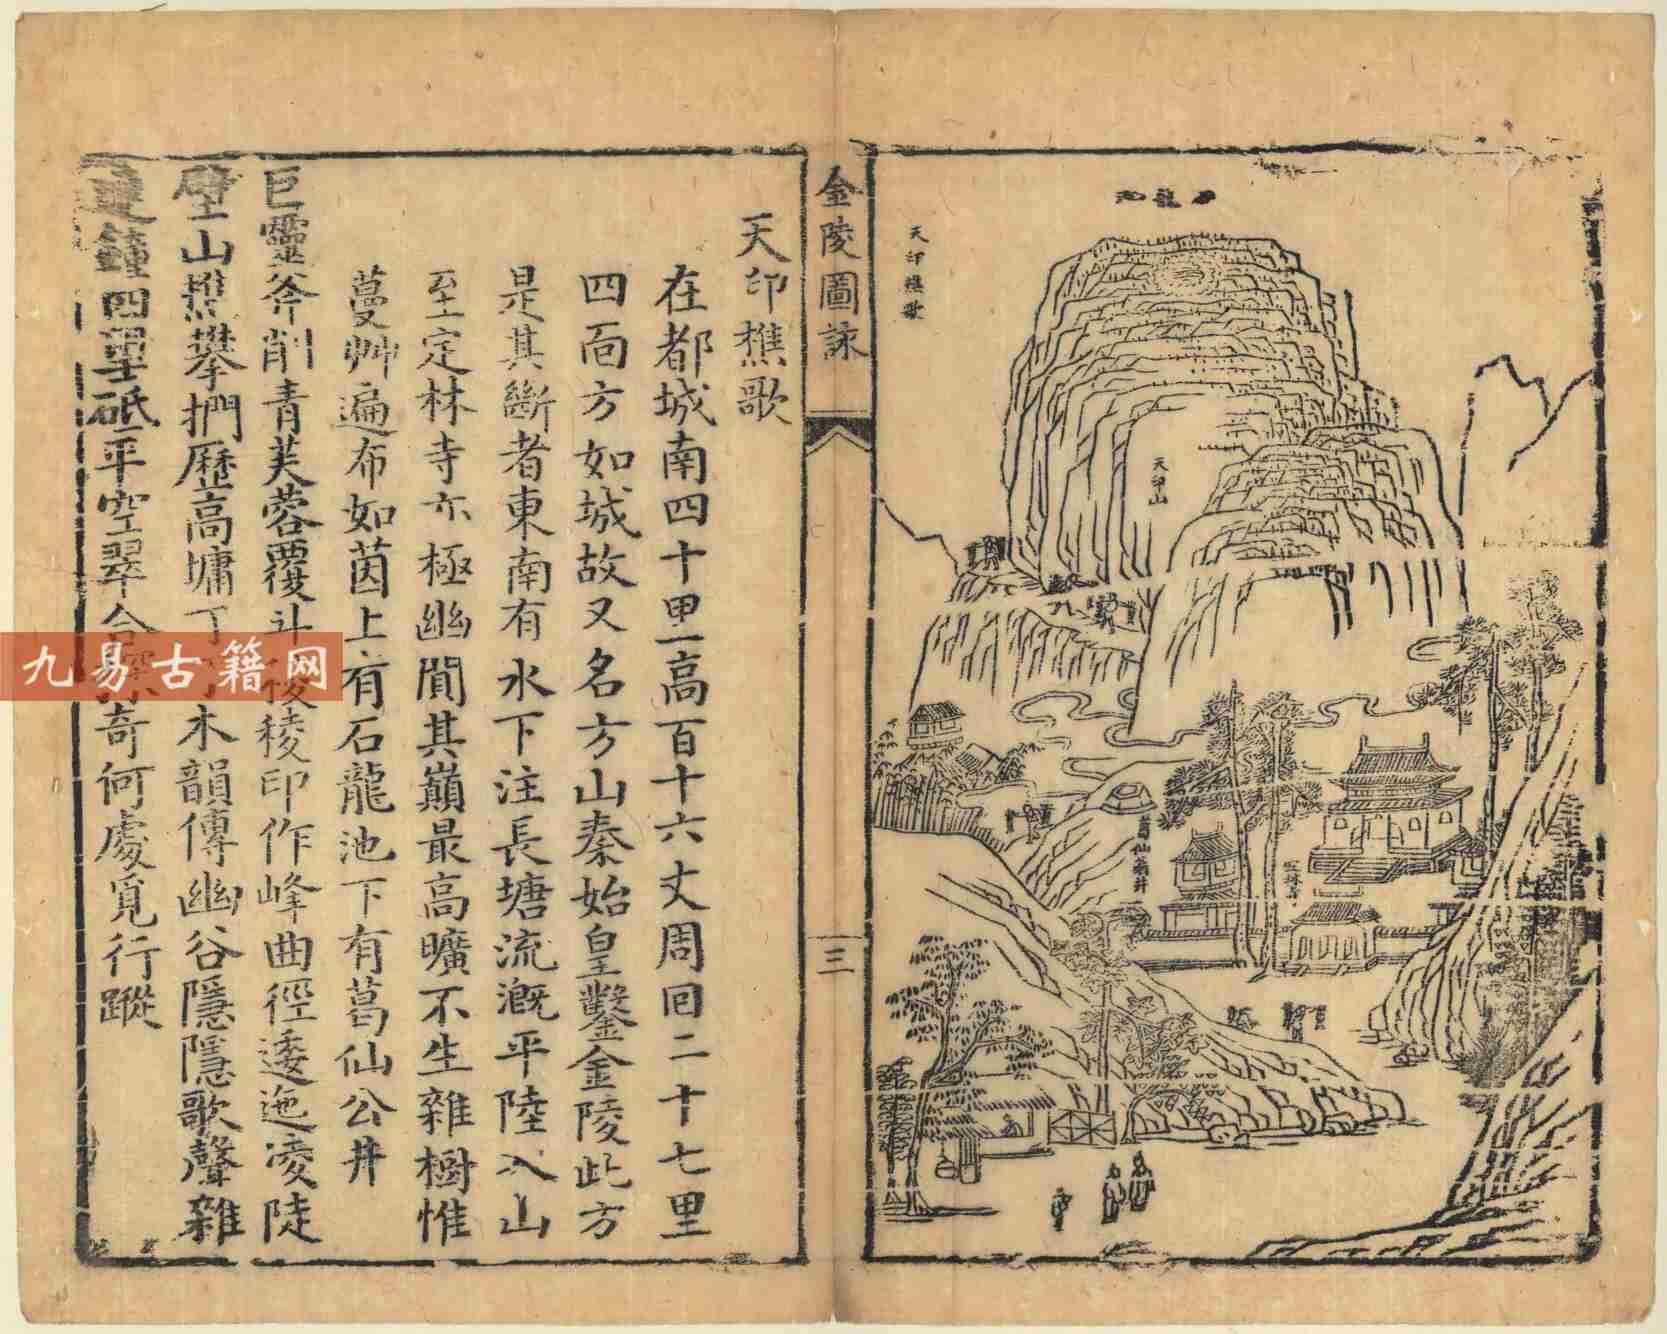 石龍池
天印樵歌
天印山
葛仙翁井
定林寺
金陵圖詠
三
天印樵歌
在都城南四十里高百十六丈周回二十七里
四面方如城故又名方山秦始皇鑿金陵此方
是其斷者東南有水下注長塘流溉平陸入山
至定林寺亦極幽閒其巔最高曠不生雜樹惟
蔓艸遍布如茵上有石龍池下有葛仙公井
巨靈斧削青芙蓉覆斗稜印作峰曲徑逶迤凌陡
壁山樵攀捫歷高墉丁木韻傳幽谷隱隱歌聲雜
遠鐘四望砥平空翠合奇何處覓行蹤
九易古籍网